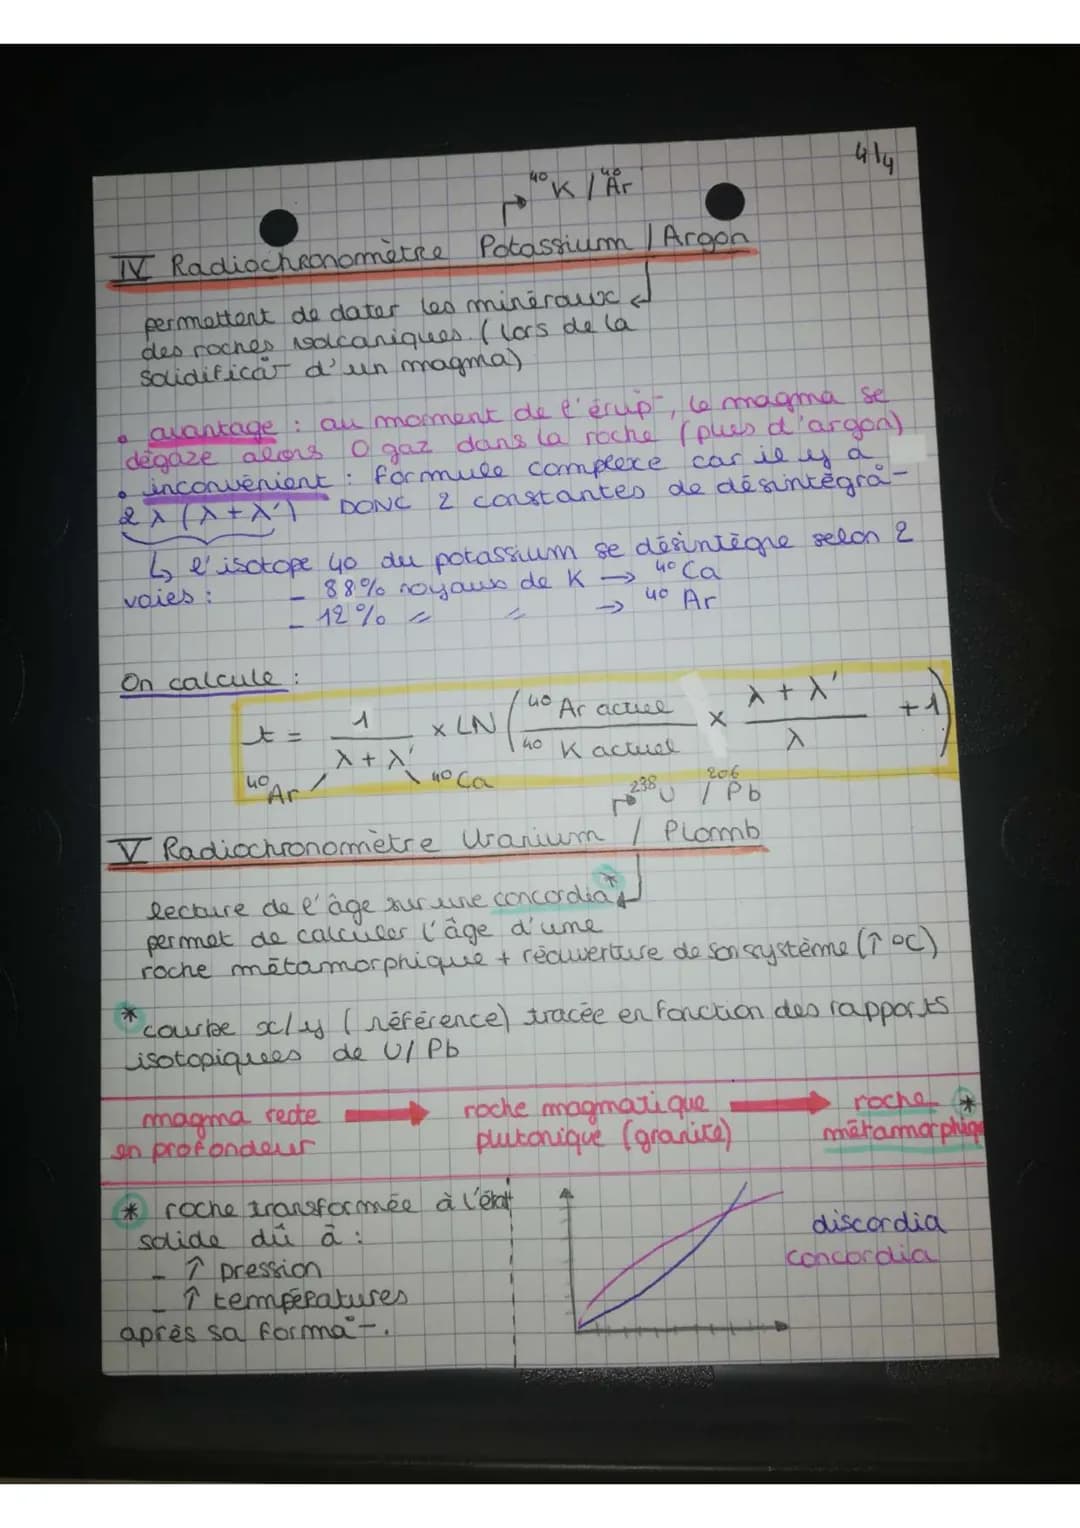 4/4
⁴⁰K / ⁴⁰Ar
IV Radiochronomètre Potassium / Argon
permettent de dater les minéraux
des roches volcaniques. (lors de la
solidificat° d'un magma)
• avantage : au moment de l'érup°, le magma se
dégaze alors 0 gaz dans la roche (plus d'argon)
• inconvénient : formule complexe car il y a
2 λ (λ+λ') DONC 2 constantes de désintégra°
↳ l'isotope 40 du potassium se désintègre selon 2
voies : - 88% noyaux de K → ⁴⁰Ca
- 12% = = → ⁴⁰Ar
On calcule :
t = 1 / (λ + λ') × LN (⁴⁰Ar actuel / ⁴⁰K actuel × (λ + λ') / λ + 1)
⁴⁰Ar ⁴⁰Ca
²³⁸U / ²⁰⁶Pb
V Radiochronomètre Uranium / Plomb
lecture de l'âge sur une concordia*
permet de calculer l'âge d'une
roche métamorphique + réouverture de son système (↑ °C)
* courbe x/y (référence) tracée en fonction des rapports
isotopiques de U/Pb
magma reste → roche magmatique → roche *
en profondeur plutonique (granite) métamorphique
* roche transformée à l'état
solide dû à :
- ↑ pression
- ↑ températures
après sa forma°.
discordia
concordia